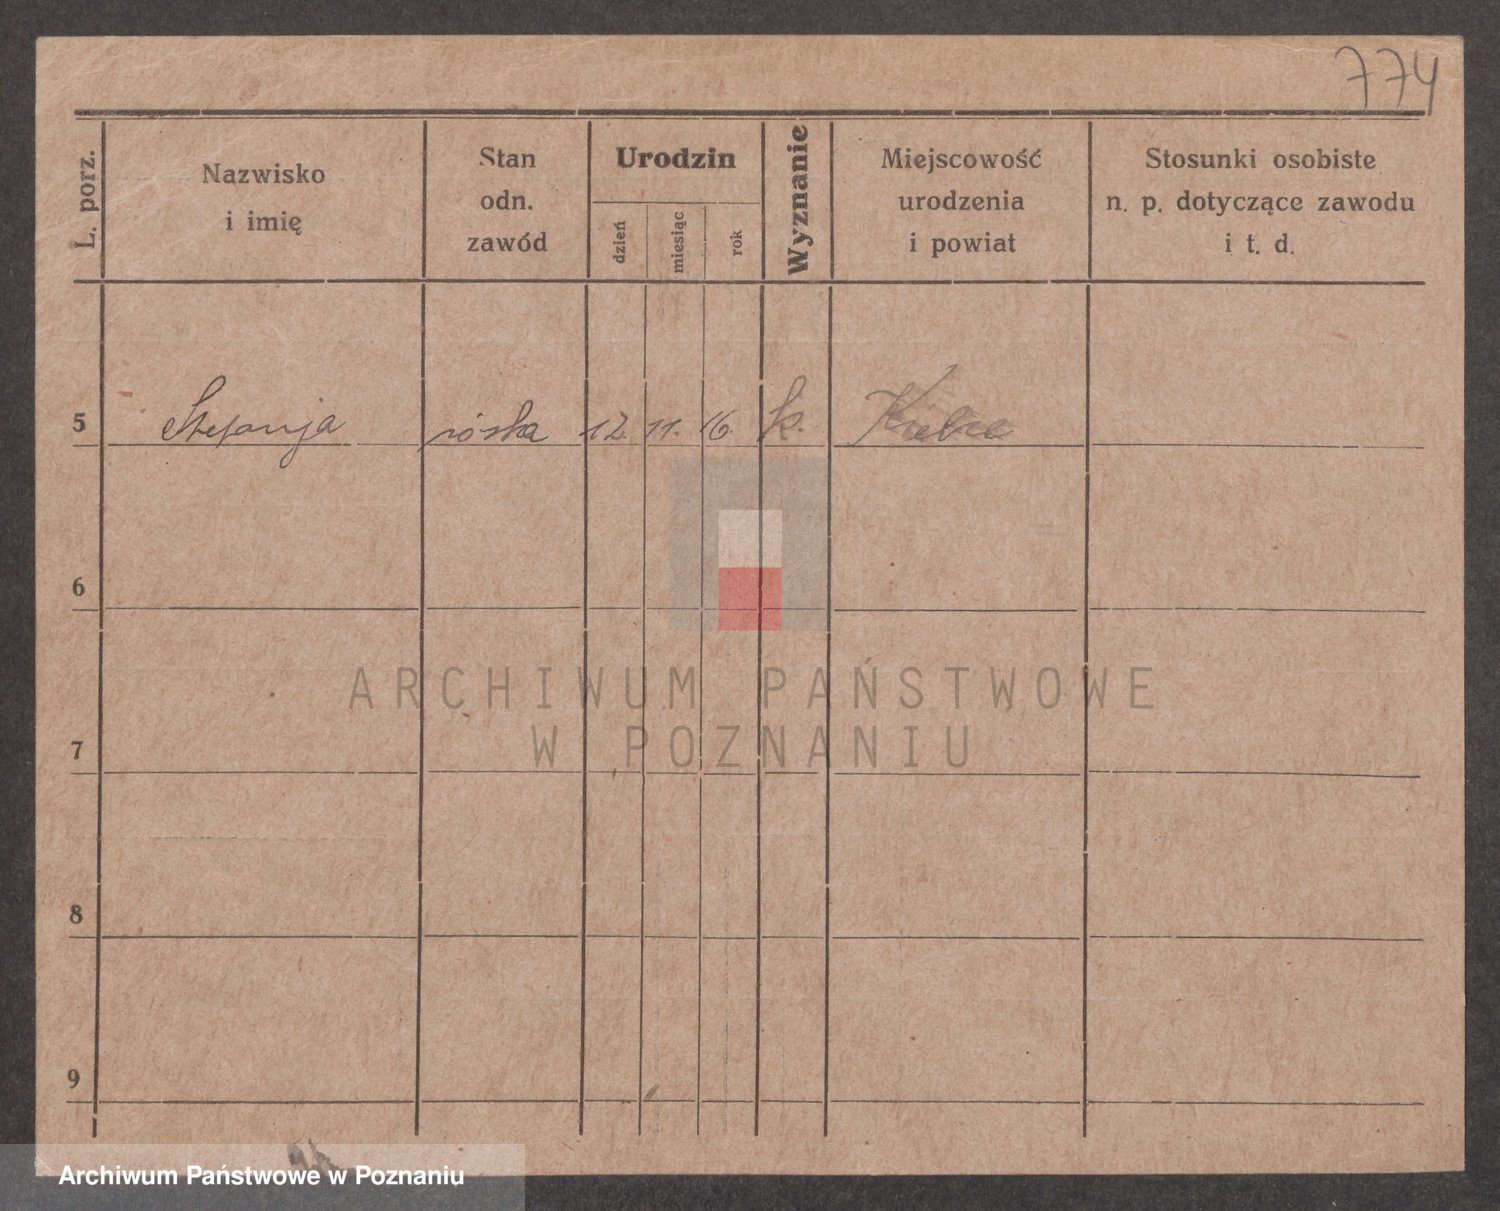 774
L. porz.
Nazwisko
i imię
Stan
odn.
zawód
Urodzin
dzień
miesiąc
rok
Wyznanie
Miejscowość
urodzenia
i powiat
Stosunki osobiste
n. p. dotyczące zawodu
i t. d.
5 Stefanja córka 12. 11. 16. k. Kielce
6
7
8
9
ARCHIWUM PAŃSTWOWE
W POZNANIU
Archiwum Państwowe w Poznaniu